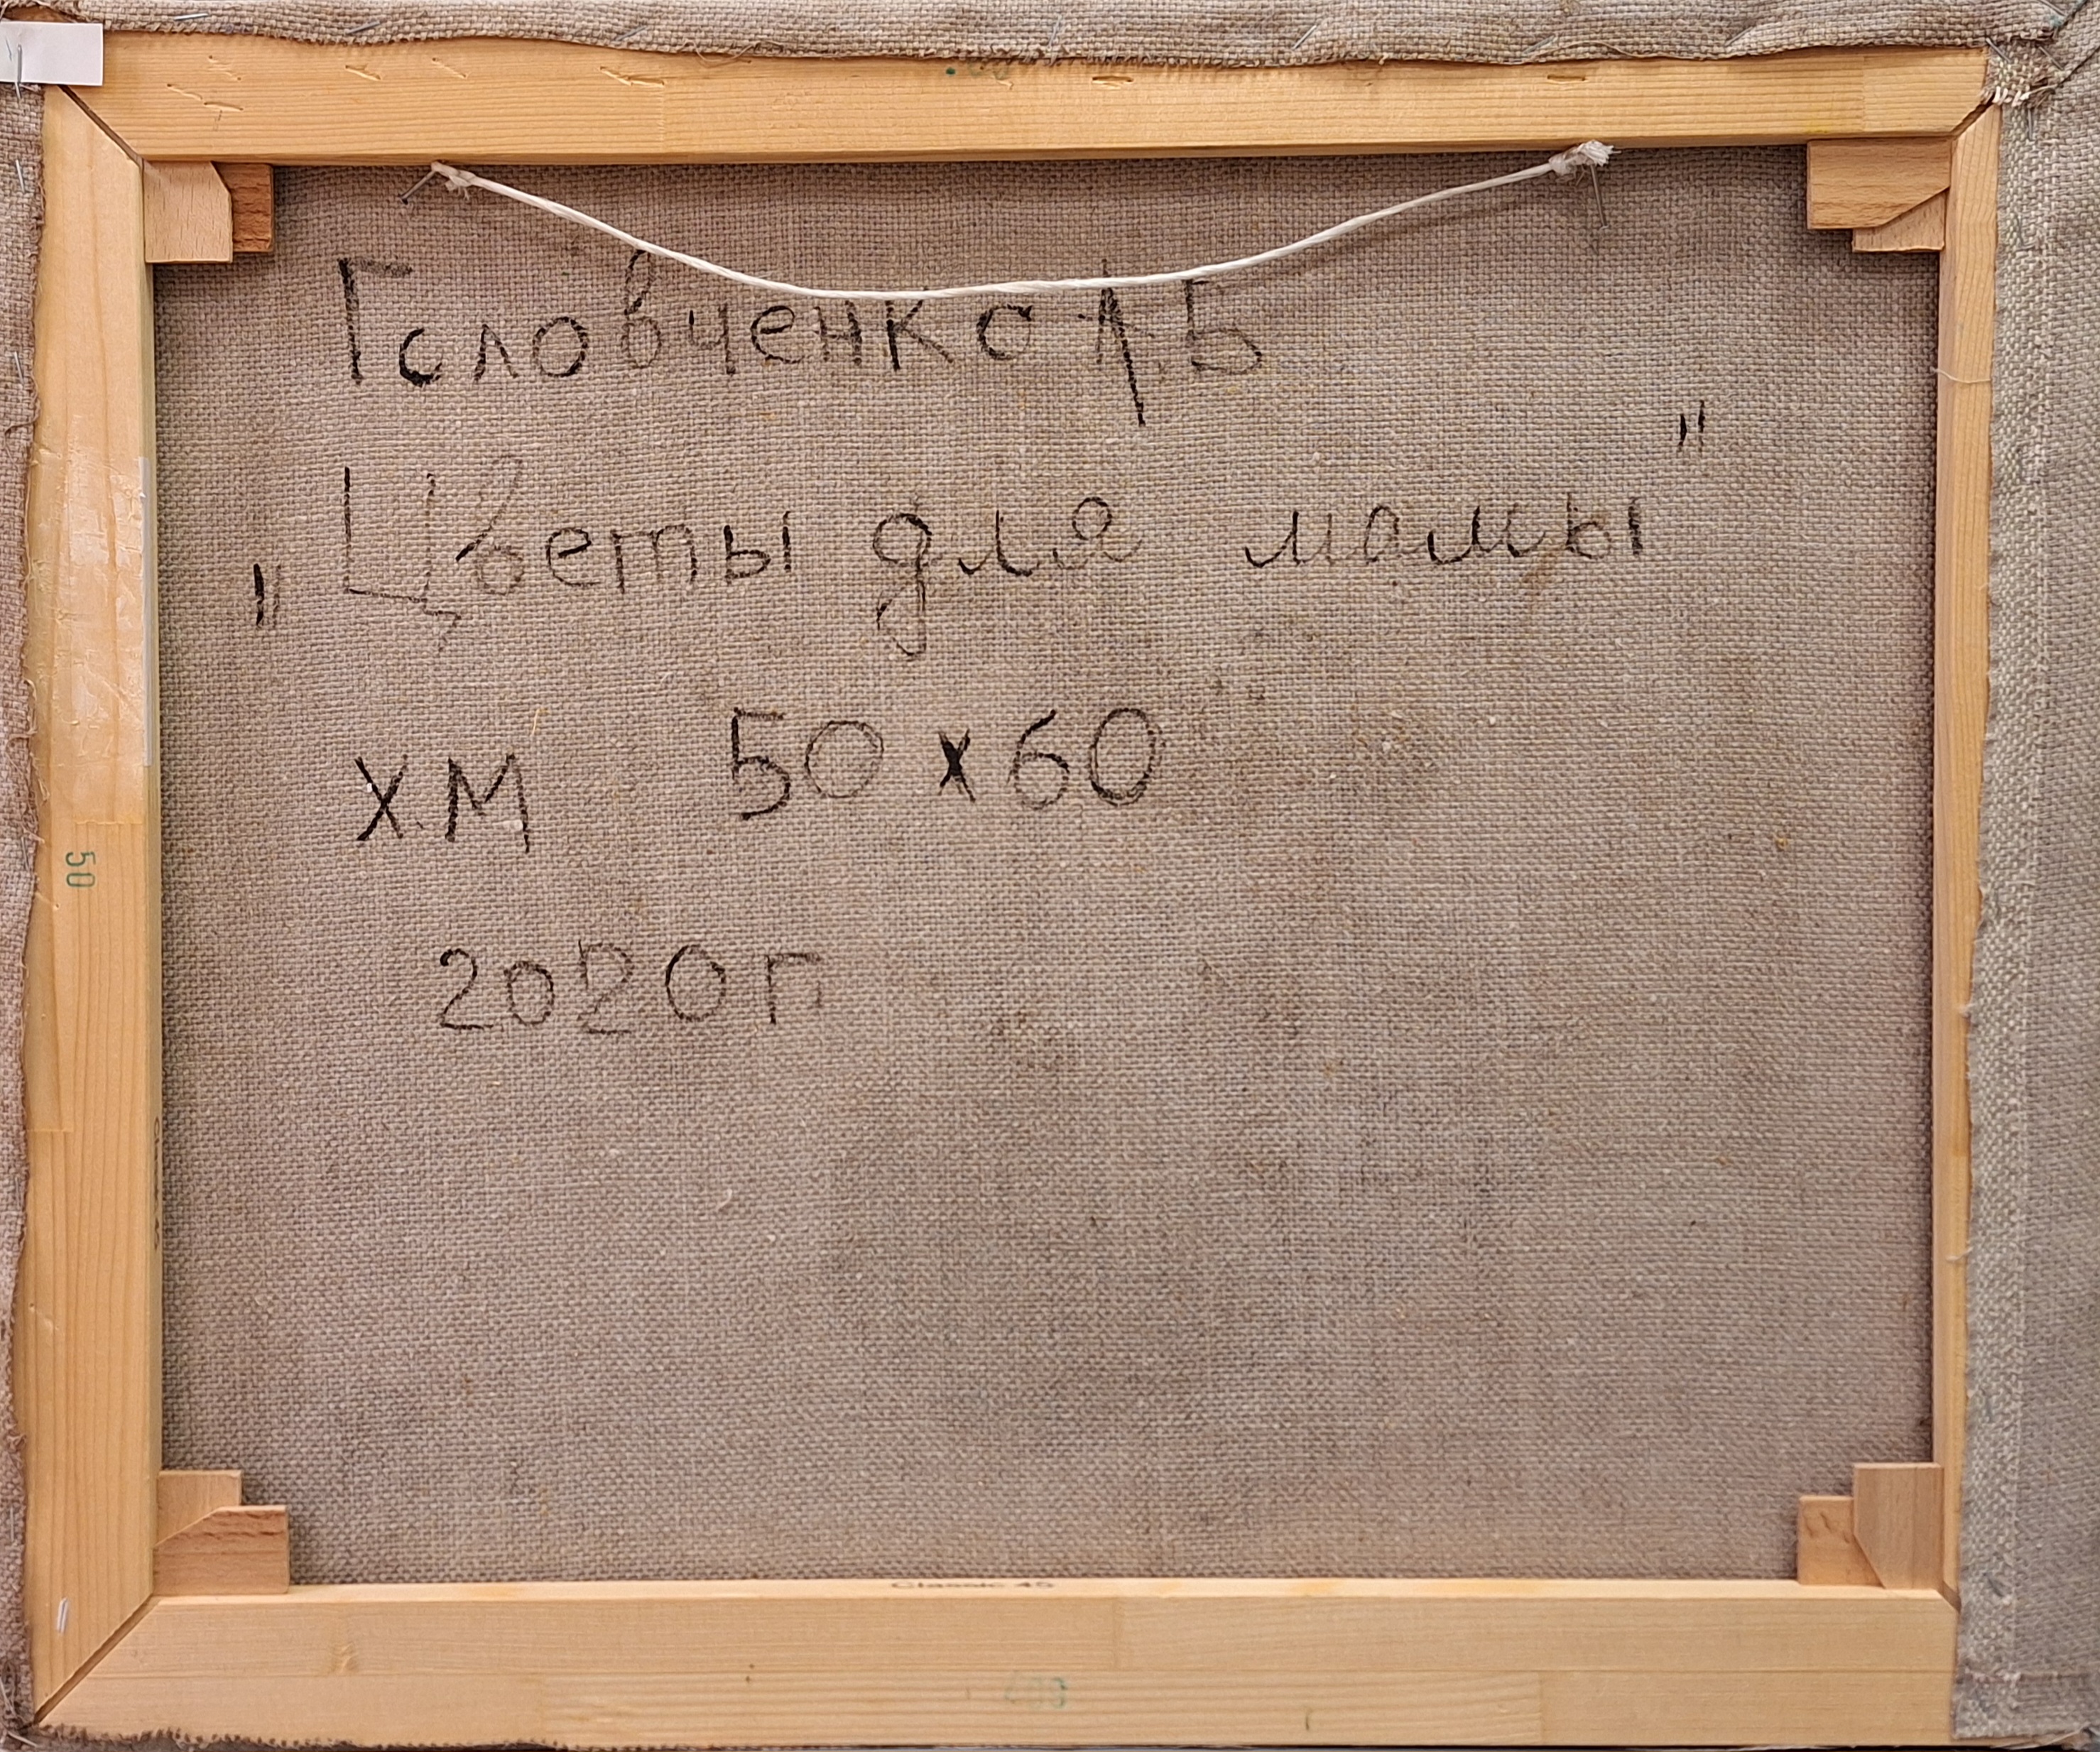 Головченко А.Б
„Цветы для мамы"
Х.М 50 х 60
2020 г
50
Classic 45